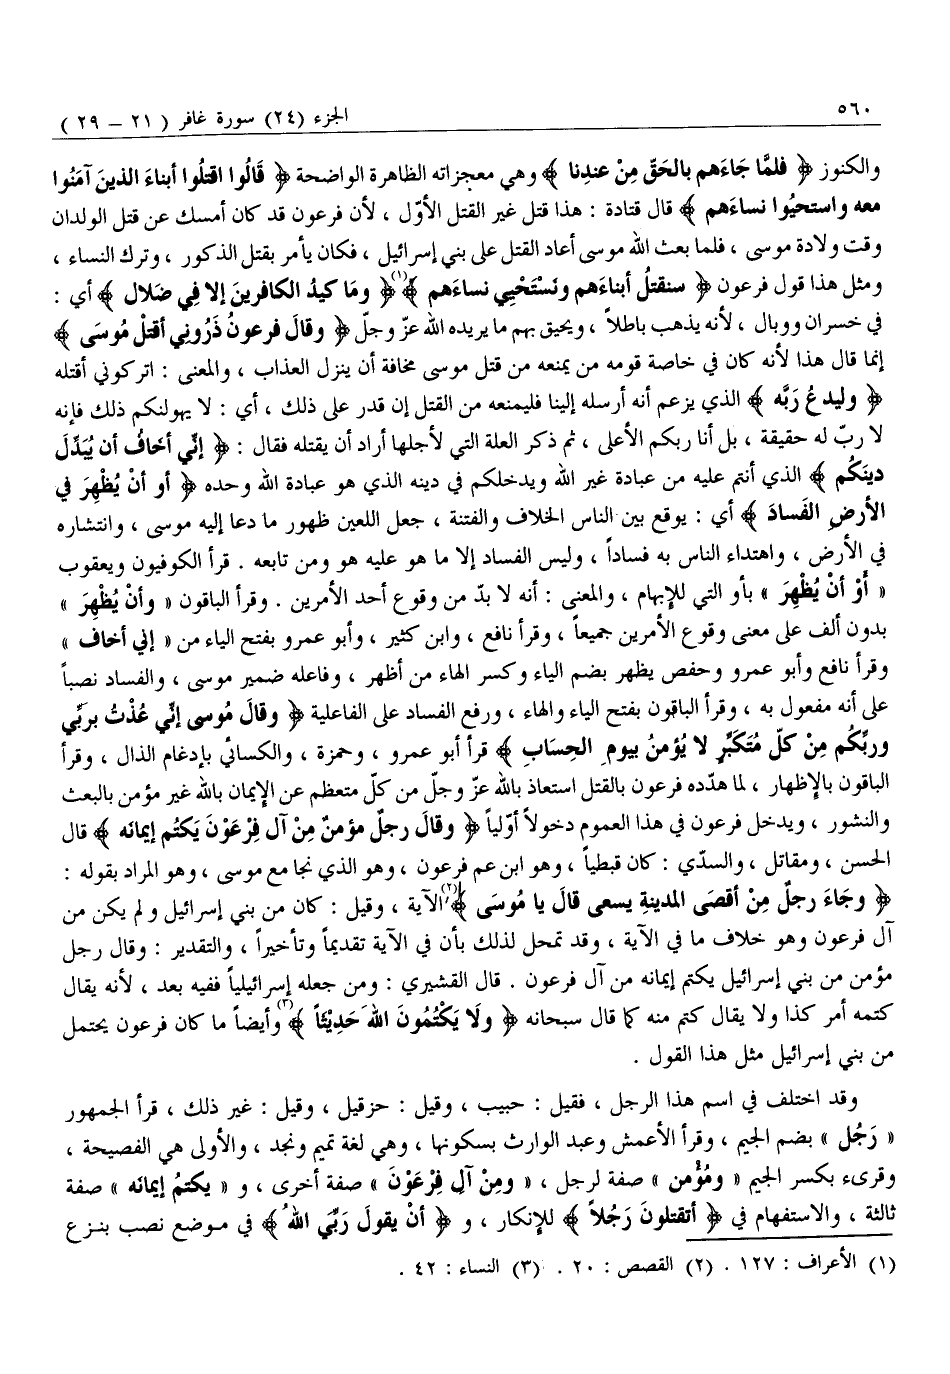 ٥٦٠
الجزء (٢٤) سورة غافر ( ٢١ – ٢٩ )
والكنوز ﴿ فلمَّا جَاءَهم بالحَقّ مِنْ عندِنا ﴾ وهي معجزاته الظاهرة الواضحة ﴿ قَالُوا اقتلُوا أبناءَ الذينَ آمَنُوا
معه واستحيُوا نساءَهم ﴾ قال قتادة : هذا قتل غير القتل الأوّل ، لأن فرعون قد كان أمسك عن قتل الولدان
وقت ولادة موسى ، فلما بعث الله موسى أعاد القتل على بني إسرائيل ، فكان يأمر بقتل الذكور ، وترك النساء ،
ومثل هذا قول فرعون ﴿ سنقتلُ أبناءَهم ونَسْتَحْيِي نساءَهم ﴾(١) ﴿ ومَا كيدُ الكافرينَ إلا فِي ضَلال ﴾ أي :
في خسران ووبال ، لأنه يذهب باطلاً ، ويحيق بهم ما يريده الله عزّ وجلّ ﴿ وقالَ فرعونُ ذَرُونِي أقتلْ مُوسَى ﴾
إنما قال هذا لأنه كان في خاصة قومه من يمنعه من قتل موسى مخافة أن ينزل العذاب ، والمعنى : اتركوني أقتله
﴿ وليدعُ رَبَّه ﴾ الذي يزعم أنه أرسله إلينا فليمنعه من القتل إن قدر على ذلك ، أي : لا يهولنكم ذلك فإنه
لا ربّ له حقيقة ، بل أنا ربكم الأعلى ، ثم ذكر العلة التي لأجلها أراد أن يقتله فقال : ﴿ إنِّي أخافُ أن يُبَدِّلَ
دينَكُم ﴾ الذي أنتم عليه من عبادة غير الله ويدخلكم في دينه الذي هو عبادة الله وحده ﴿ أو أنْ يُظْهِرَ في
الأرضِ الفَسادَ ﴾ أي : يوقع بين الناس الخلاف والفتنة ، جعل اللعين ظهور ما دعا إليه موسى ، وانتشاره
في الأرض ، واهتداء الناس به فساداً ، وليس الفساد إلا ما هو عليه هو ومن تابعه . قرأ الكوفيون ويعقوب
« أَوْ أنْ يُظْهِرَ » بأو التي للإبهام ، والمعنى : أنه لا بدّ من وقوع أحد الأمرين . وقرأ الباقون « وأنْ يُظْهِرَ »
بدون ألف على معنى وقوع الأمرين جميعاً ، وقرأ نافع ، وابن كثير ، وأبو عمرو بفتح الياء من « إني أخاف »
وقرأ نافع وأبو عمرو وحفص يظهر بضم الياء وكسر الهاء من أظهر ، وفاعله ضمير موسى ، والفساد نصباً
على أنه مفعول به ، وقرأ الباقون بفتح الياء والهاء ، ورفع الفساد على الفاعلية ﴿ وقالَ مُوسى إنّي عُذْتُ بربِّي
وربِّكُم مِنْ كلّ مُتَكبِّرٍ لا يُؤمنُ بيومِ الحِسَابِ ﴾ قرأ أبو عمرو ، وحمزة ، والكسائي بإدغام الذال ، وقرأ
الباقون بالإظهار ، لما هدّده فرعون بالقتل استعاذ بالله عزّ وجلّ من كلّ متعظم عن الإيمان بالله غير مؤمن بالبعث
والنشور ، ويدخل فرعون في هذا العموم دخولاً أوّلياً ﴿ وقالَ رجلٌ مؤمنٌ مِنْ آل فِرْعَوْنَ يَكتُم إيمانَه ﴾ قال
الحسن ، ومقاتل ، والسدّي : كان قبطياً ، وهو ابن عم فرعون ، وهو الذي نجا مع موسى ، وهو المراد بقوله :
﴿ وجَاءَ رجلٌ مِنْ أقصَى المدينةِ يسعى قالَ يا مُوسَى ﴾(٢) الآية ، وقيل : كان من بني إسرائيل ولم يكن من
آل فرعون وهو خلاف ما في الآية ، وقد تمحل لذلك بأن في الآية تقديماً وتأخيراً ، والتقدير : وقال رجل
مؤمن من بني إسرائيل يكتم إيمانه من آل فرعون . قال القشيري : ومن جعله إسرائيلياً ففيه بعد ، لأنه يقال
كتمه أمر كذا ولا يقال كتم منه كما قال سبحانه ﴿ ولَا يَكْتُمُونَ اللهَ حَدِيْثاً ﴾(٣) وأيضاً ما كان فرعون يحتمل
من بني إسرائيل مثل هذا القول .
وقد اختلف في اسم هذا الرجل ، فقيل : حبيب ، وقيل : حزقيل ، وقيل : غير ذلك ، قرأ الجمهور
« رَجُل » بضم الجيم ، وقرأ الأعمش وعبد الوارث بسكونها ، وهي لغة تميم ونجد ، والأولى هي الفصيحة ،
وقرىء بكسر الجيم « ومُؤْمن » صفة لرجل ، « ومِنْ آلِ فِرْعَوْنَ » صفة أخرى ، و « يكتمُ إيمانَه » صفة
ثالثة ، والاستفهام في ﴿ أتقتلونَ رَجُلاً ﴾ للإنكار ، و ﴿ أنْ يقولَ رَبِّيَ اللهُ ﴾ في موضع نصب بنزع
(١) الأعراف : ١٢٧ . (٢) القصص : ٢٠ . (٣) النساء : ٤٢ .